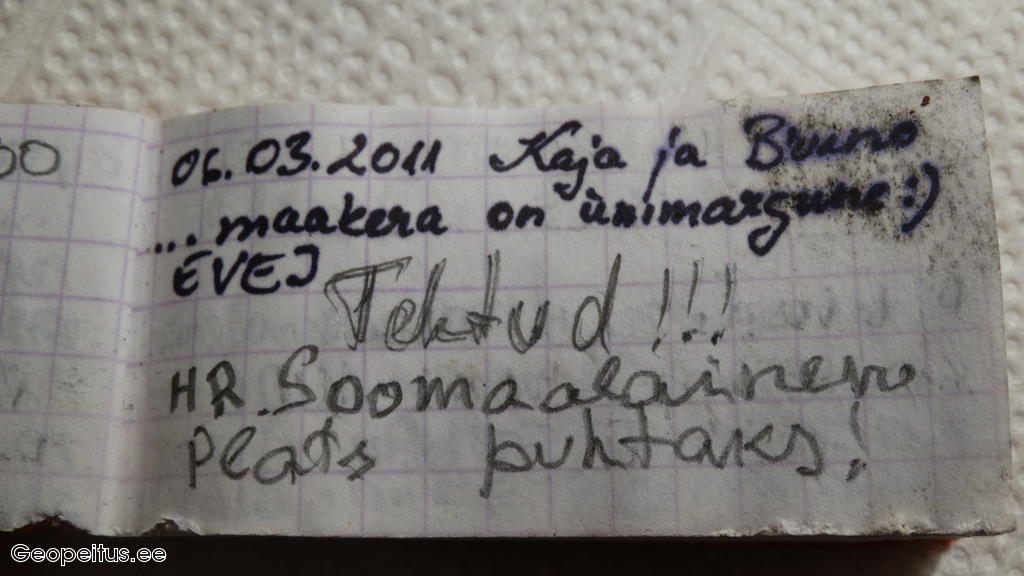 06.03.2011 Kaja ja Bruno
... maakera on ünimargune :)
EVEJ
Tehtud !!!
HR. Soomaalainen
Plats puhtaks!
Geopeitus.ee